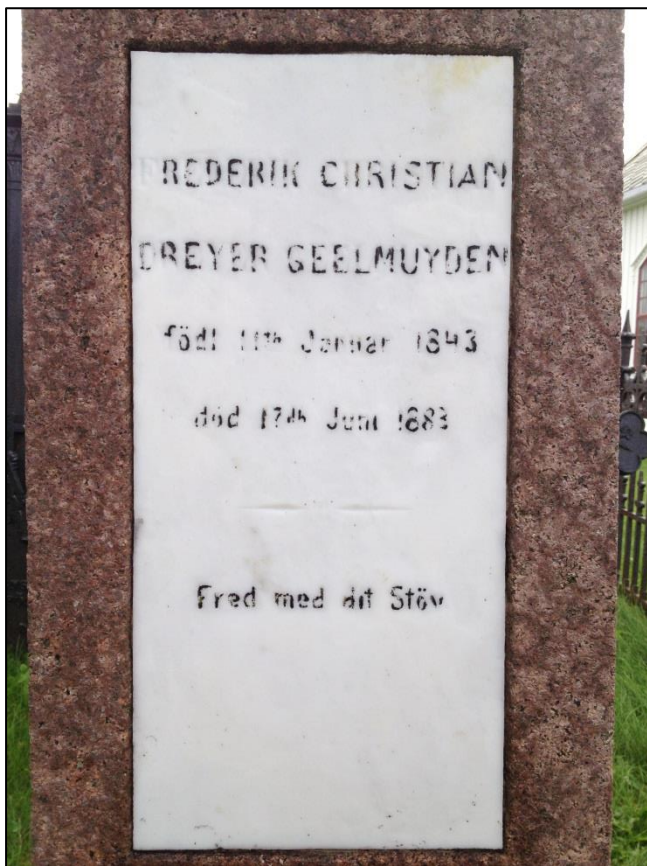 FREDERIK CHRISTIAN
DREYER GEELMUYDEN
född 11th Januar 1843
död 17th Juni 1883
Fred med dit Stöv